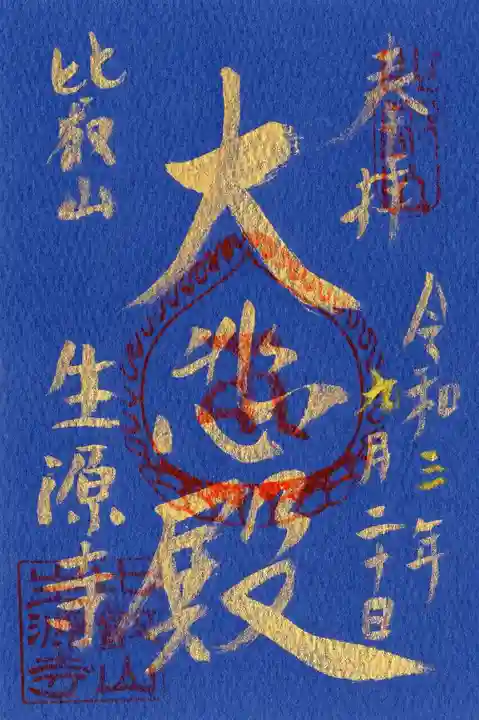 奉拝
令和三年
九月二十日
大悲殿
比叡山
生源寺